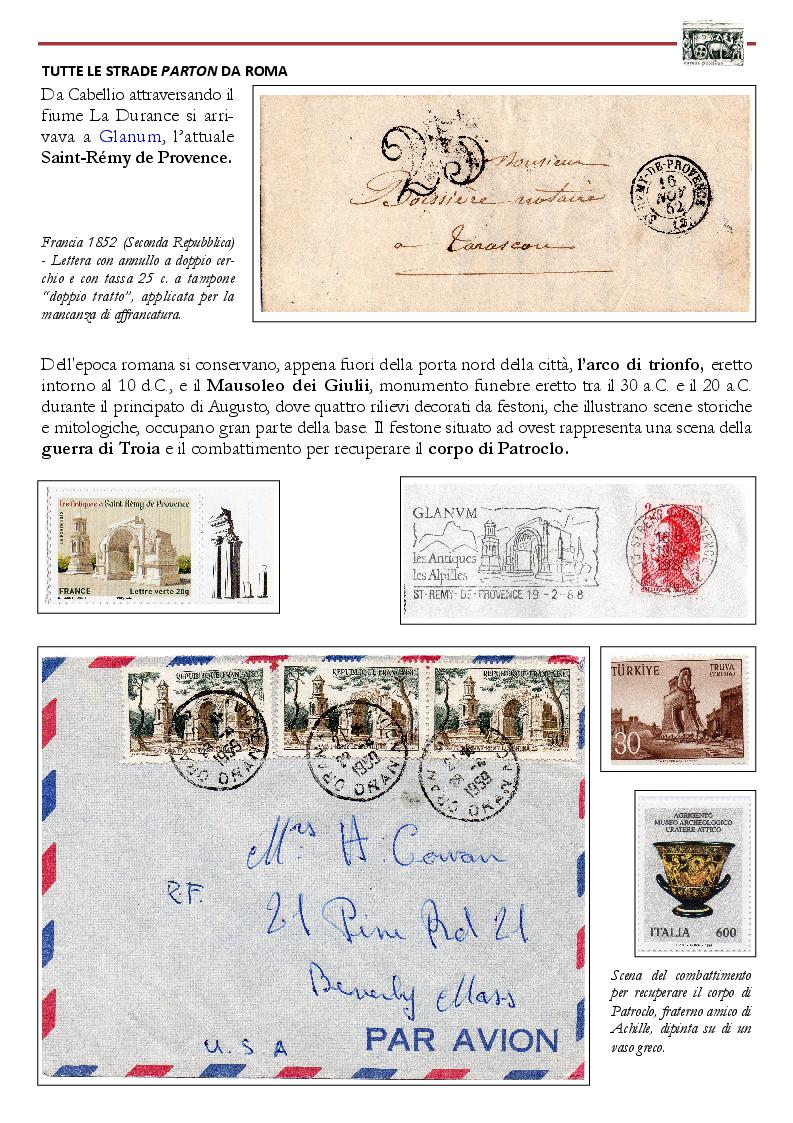 cursus publicus
TUTTE LE STRADE PARTON DA ROMA
Da Cabellio attraversando il
fiume La Durance si arri-
vava a Glanum, l'attuale
Saint-Rémy de Provence.
25
Monsieur
Boissière notaire
a Tarascon
ST-REMY-DE-PROVENCE
16
NOV
52
(12)
Francia 1852 (Seconda Repubblica)
- Lettera con annullo a doppio cer-
chio e con tassa 25 c. a tampone
"doppio tratto", applicata per la
mancanza di affrancatura.
Dell'epoca romana si conservano, appena fuori della porta nord della città, l'arco di trionfo, eretto
intorno al 10 d.C., e il Mausoleo dei Giulii, monumento funebre eretto tra il 30 a.C. e il 20 a.C.
durante il principato di Augusto, dove quattro rilievi decorati da festoni, che illustrano scene storiche
e mitologiche, occupano gran parte della base. Il festone situato ad ovest rappresenta una scena della
guerra di Troia e il combattimento per recuperare il corpo di Patroclo.
Les Antiques à Saint Rémy de Provence
LA POSTE
FRANCE
Lettre verte 20g
GLANVM
les Antiques
les Alpilles
ST-REMY-DE-PROVENCE 19-2-88
REPUBLIQUE FRANÇAISE
REPUBLIQUE FRANÇAISE
REPUBLIQUE FRANÇAISE
ORAN
1959
ORAN
1959
ORAN
1959
Mrs H. Cowan
R.F.
21 Pine Rd 21
Beverly Mass
U.S A
PAR AVION
TÜRKİYE
TRUVA
(TROIA)
30
AGRIGENTO
MUSEO ARCHEOLOGICO
CRATERE ATTICO
ITALIA 600
Scena del combattimento
per recuperare il corpo di
Patroclo, fraterno amico di
Achille, dipinta su di un
vaso greco.